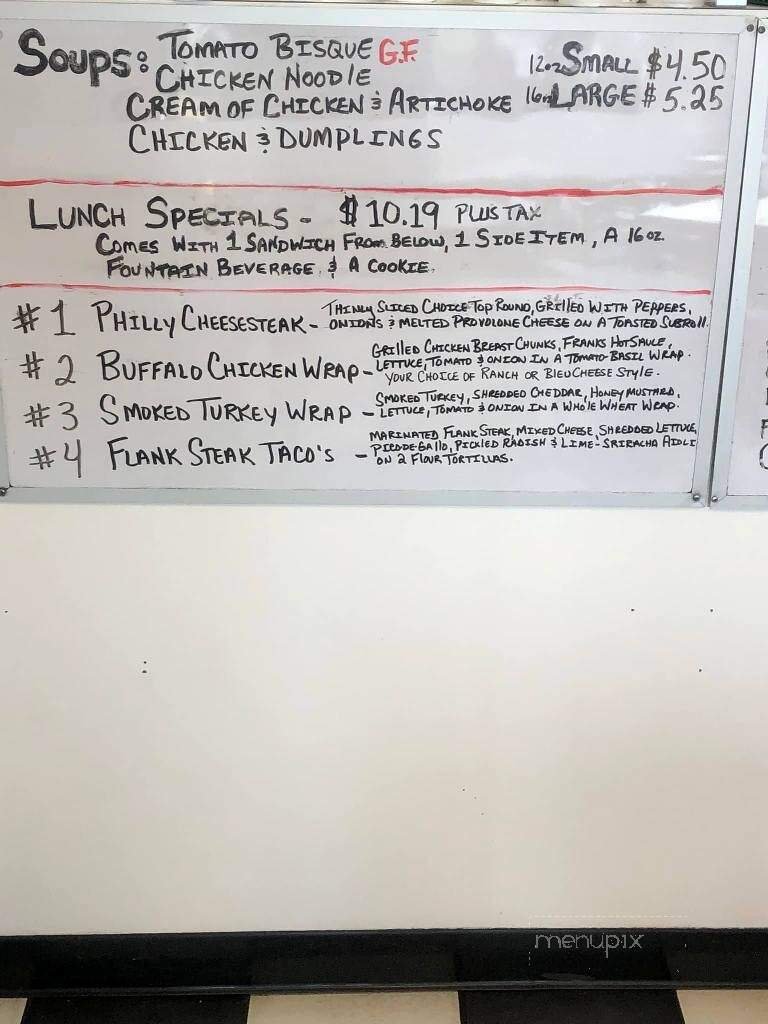 SOUPS: TOMATO BISQUE G.F. 12oz SMALL $4.50
CHICKEN NOODLE 16oz LARGE $5.25
CREAM OF CHICKEN & ARTICHOKE
CHICKEN & DUMPLINGS
LUNCH SPECIALS - $10.19 PLUS TAX
COMES WITH 1 SANDWICH FROM BELOW, 1 SIDE ITEM, A 16oz.
FOUNTAIN BEVERAGE, & A COOKIE.
#1 PHILLY CHEESESTEAK - THINLY SLICED CHOICE TOP ROUND, GRILLED WITH PEPPERS,
ONIONS & MELTED PROVOLONE CHEESE ON A TOASTED SUBROLL.
#2 BUFFALO CHICKEN WRAP - GRILLED CHICKEN BREAST CHUNKS, FRANKS HOT SAUCE,
LETTUCE, TOMATO & ONION IN A TOMATO-BASIL WRAP.
YOUR CHOICE OF RANCH OR BLEU CHEESE STYLE.
#3 SMOKED TURKEY WRAP - SMOKED TURKEY, SHREDDED CHEDDAR, HONEY MUSTARD,
LETTUCE, TOMATO & ONION IN A WHOLE WHEAT WRAP.
#4 FLANK STEAK TACO'S - MARINATED FLANK STEAK, MIXED CHEESE, SHREDDED LETTUCE,
PICO-DE-GALLO, PICKLED RADISH & LIME-SRIRACHA AIOLI
ON 2 FLOUR TORTILLAS.
menupix